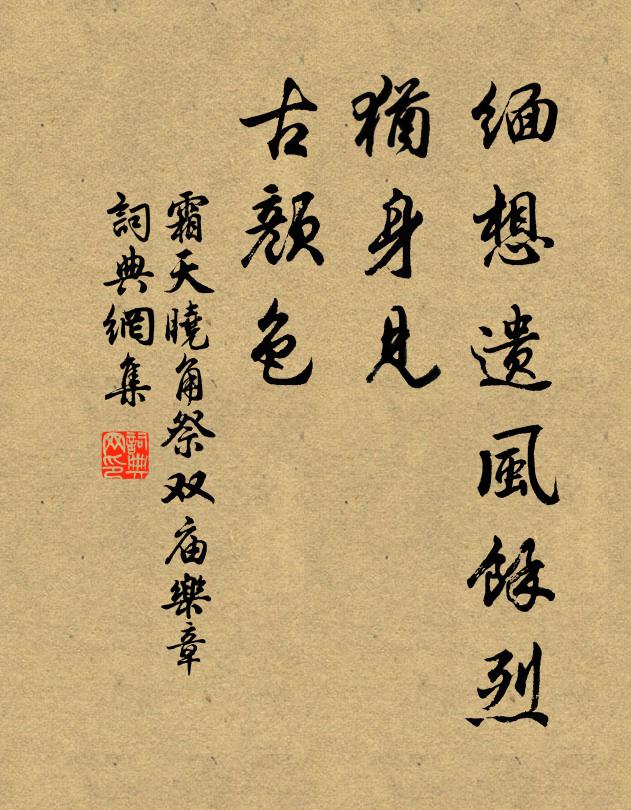 缅想遗風餘烈
猶身見
古顏色
霜天曉角祭双庙樂章
詞典網集
詞典网印